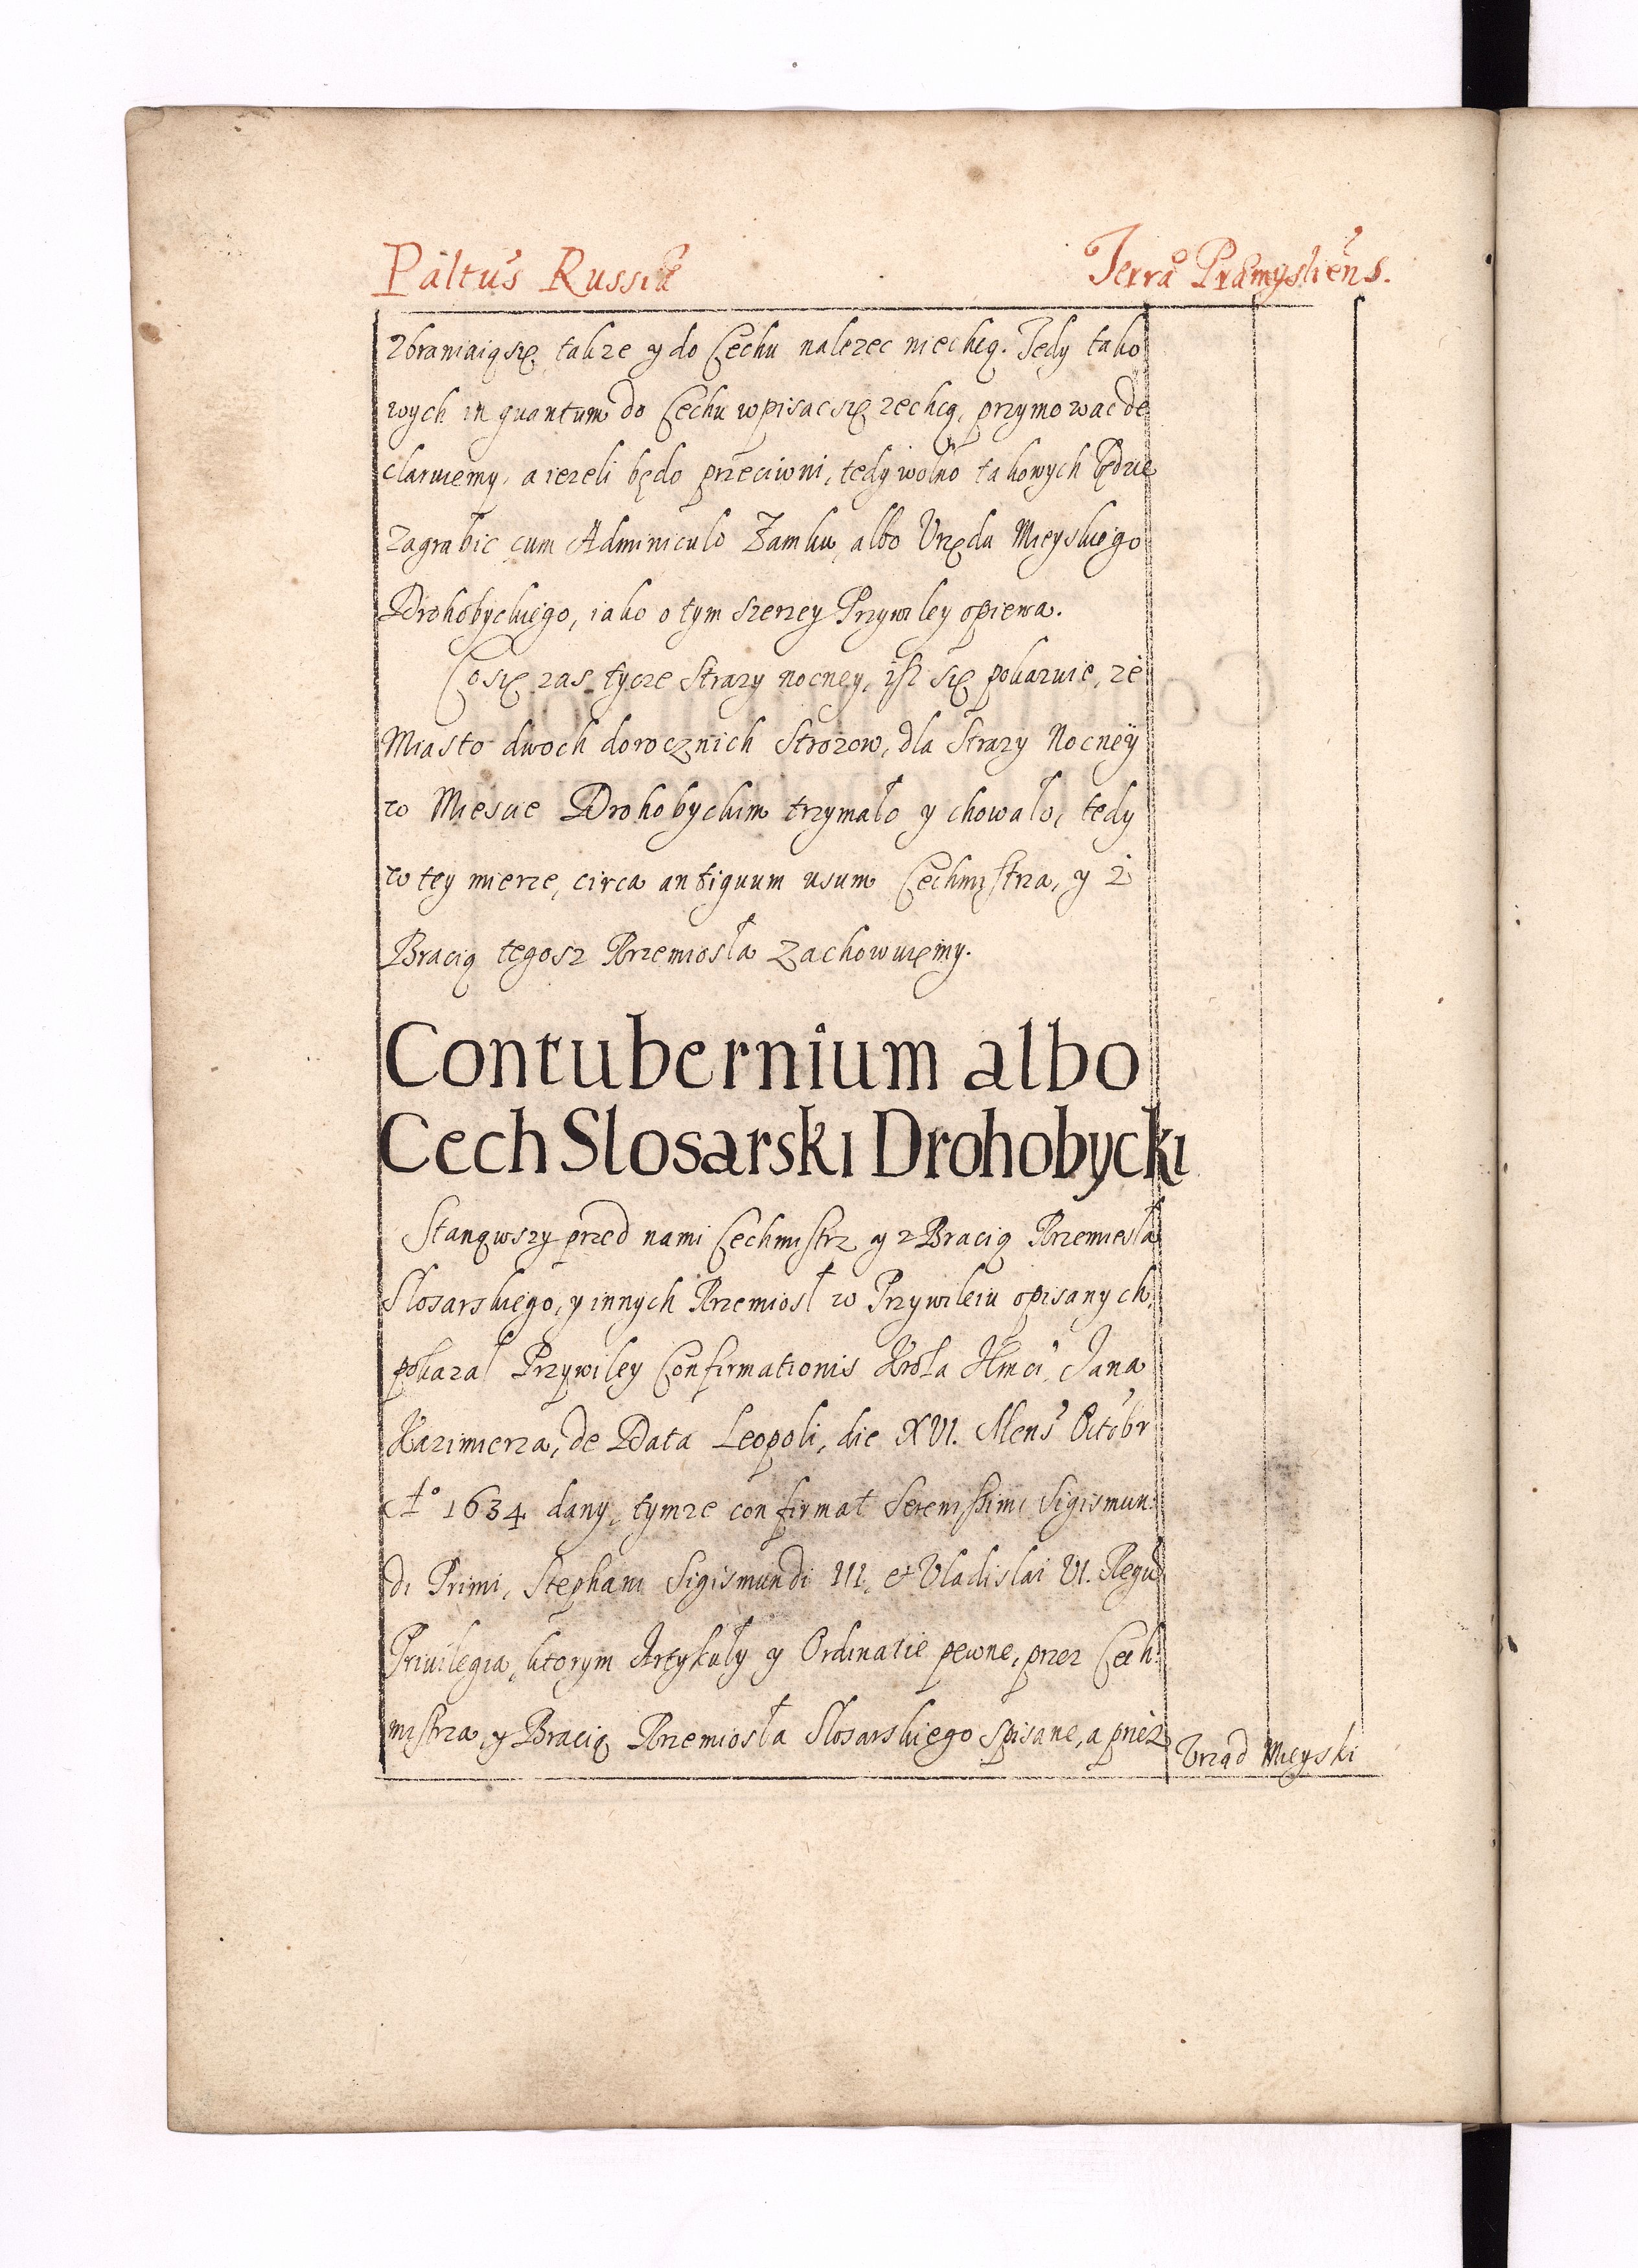 Păltûs Russiæ
Terrâ Præmyslien̄s.
zbraniaią się, takze y do Cechu nalezec niechcą. Tedy tako
wych in quantum do Cechu wpisac się zechcą, przymowac de
claruiemy, a iezeli będo przeciwni, tedy wolno takowych będzie
zagrabic cum Adminiculo Zamku, albo Vrzędu Mieyskiego
Drohobyckiego, iako o tym szerzey Przywiley opiewa.
Co się zas tycze Strazy nocney, isz się pokazuie, ze
Miasto dwoch dorocznich Strozow, dla Strazy Nocney
w Miescie Drohobyckim trzymało y chowało, tedy
w tey mierze, circa antiquum usum Cechmistrza, y z
Bracią tegosz Rzemiosła zachowuiemy.
Contubernium albo
Cech Slosarski Drohobycki
Stanąwszy przed nami Cechmistrz y z Bracią Rzemiesła
Slosarskiego, y innych Rzemiosł w Przywileiu opisanych,
pokazał Przywiley Confirmationis Krola Jmci Jana
Kazimierza, de Data Leopoli, die XVI. Mens Octobr
Aº 1634 dany, tymze confirmat Serenissimi Sigismun
di Primi, Stephani Sigismundi III, et Vladislai VI. Regu
Privilegia, ktorym Artykuły y Ordinatie pewne, przez Cech
mistrza y Bracią Rzemiosła Slosarskiego spisane, a przez
Vrząd Mieyski